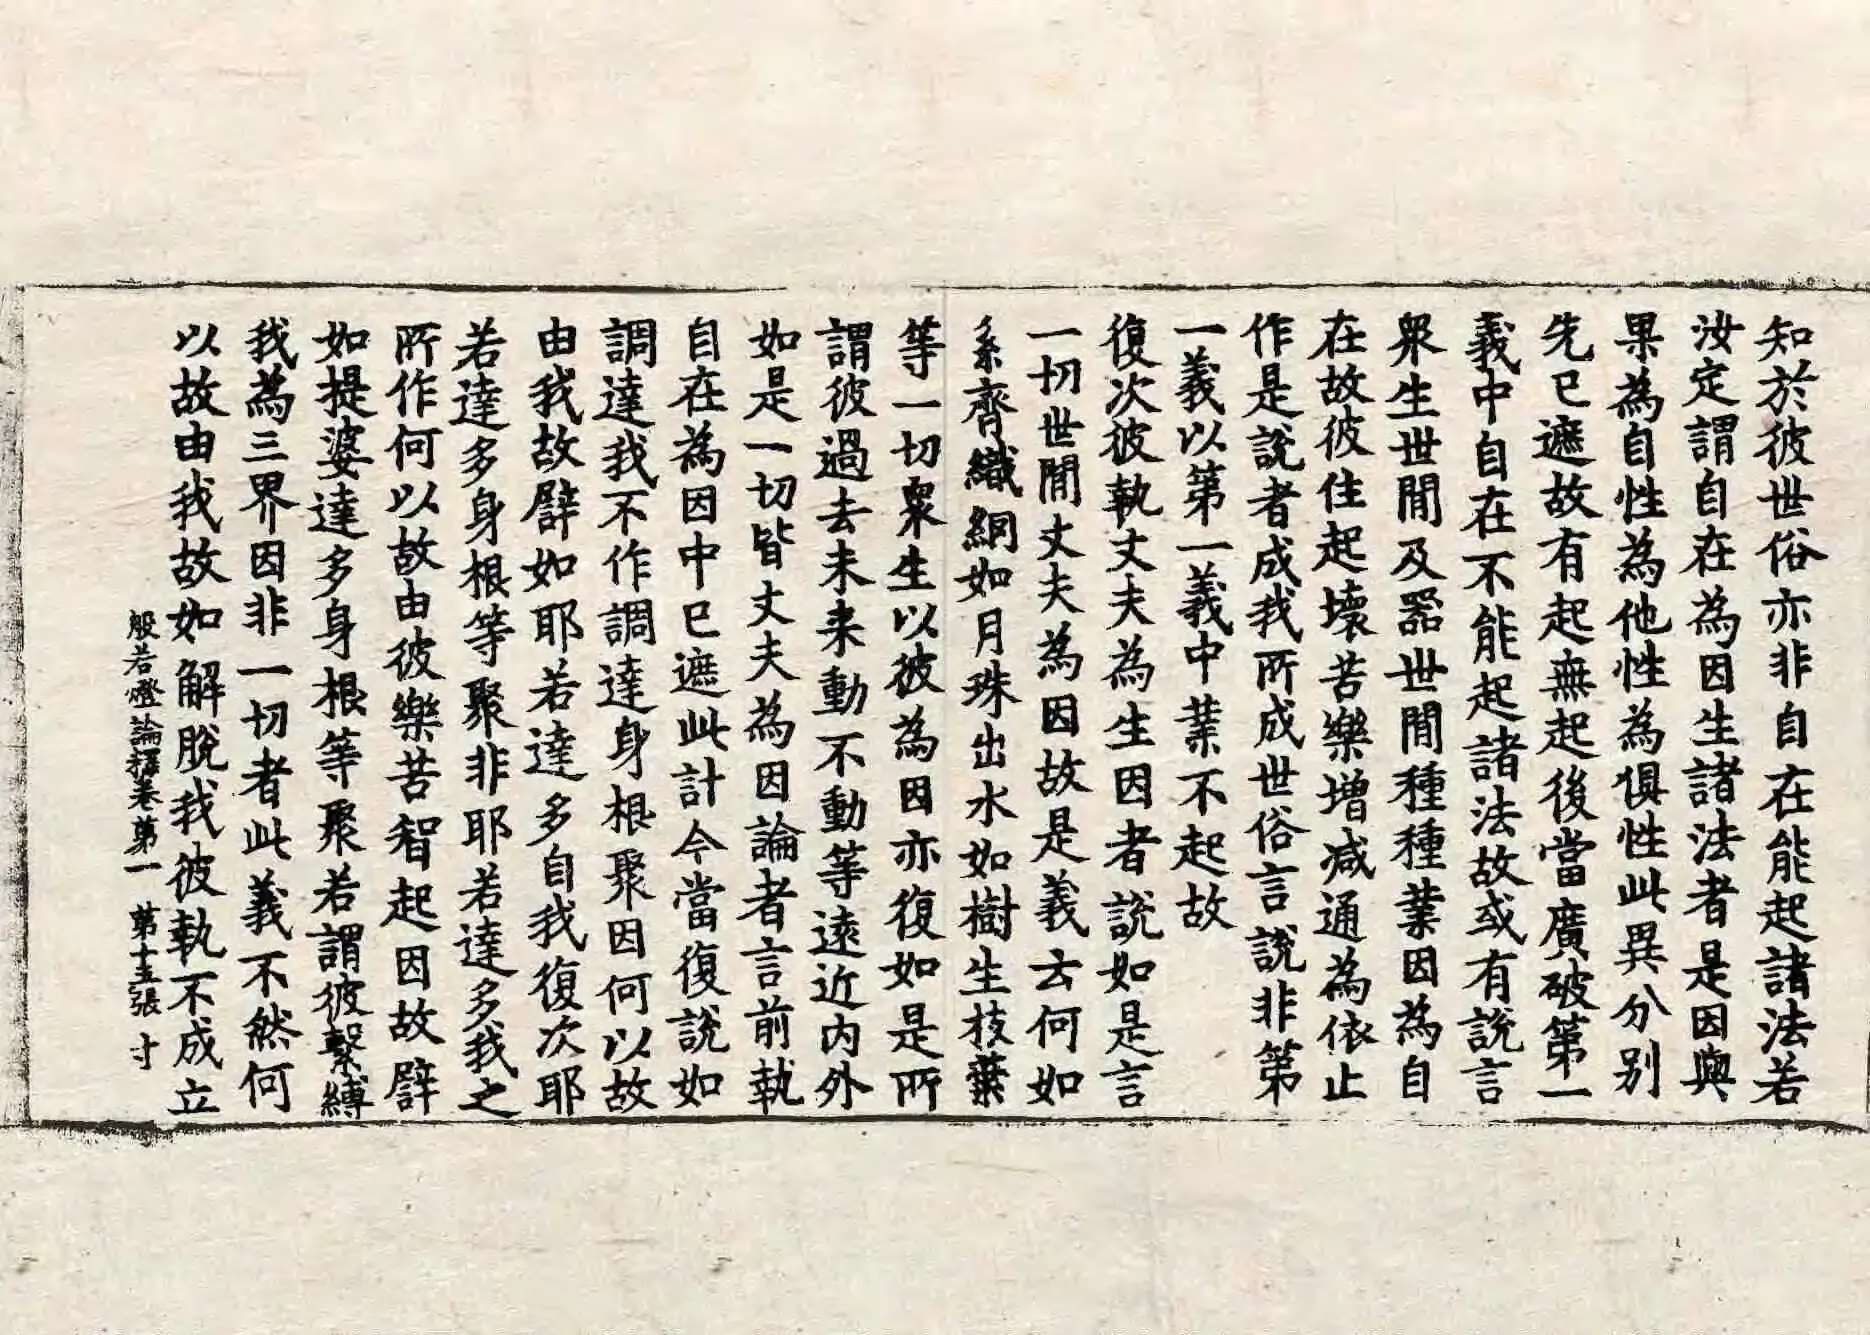 知於彼世俗亦非自在能起諸法若
汝定謂自在為因生諸法者是因與
果為自性為他性為俱性此異分別
先已遮故有起無起後當廣破第一
義中自在不能起諸法故或有說言
衆生世間及器世間種種業因為自
在故彼住起壞苦樂增減通為依止
作是說者成我所成世俗言說非第
一義以第一義中業不起故
復次彼執丈夫為生因者說如是言
一切世間丈夫為因故是義云何如
糸齊織網如月珠出水如樹生枝葉
等一切衆生以彼為因亦復如是所
謂彼過去未来動不動等遠近内外
如是一切皆丈夫為因論者言前執
自在為因中已遮此計今當復說如
調達我不作調達身根聚因何以故
由我故譬如耶若達多自我復次耶
若達多身根等聚非耶若達多我之
所作何以故由彼樂苦智起因故譬
如提婆達多身根等聚若謂彼繫縛
我為三界因非一切者此義不然何
以故由我故如解脫我彼執不成立
般若燈論釋卷第一 第十五張 寸